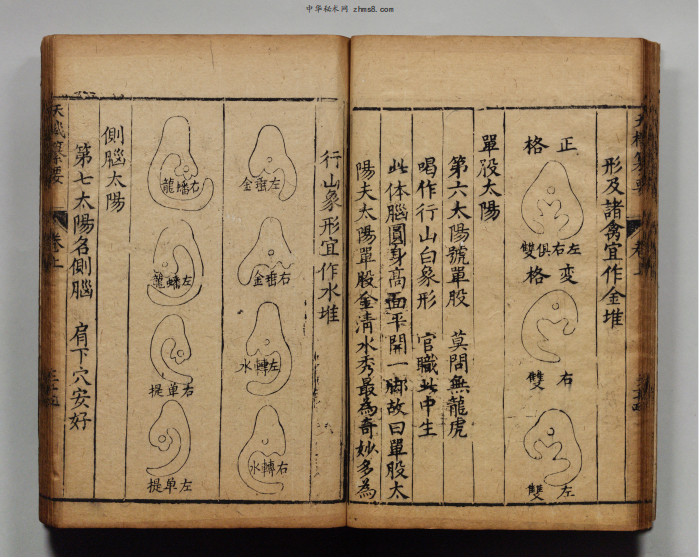 中华秘术网 zhms8.com
卷上
形及諸禽宜作金堆
正格
左右俱雙
变格
右雙
左雙
單股太陽
第六太陽號單股 莫問無龍虎
喝作行山白象形 官職此中生
此体腦圓身高面平開一脚故曰單股太
陽夫太陽單股金清水秀最為奇妙多為
行山象形宜作水堆
左垂金
右垂金
左轉水
右轉水
右蟠龍
左蟠龍
右单提
左单提
側腦太陽
第七太陽名側腦 肩下穴安好
天機纂要 卷上